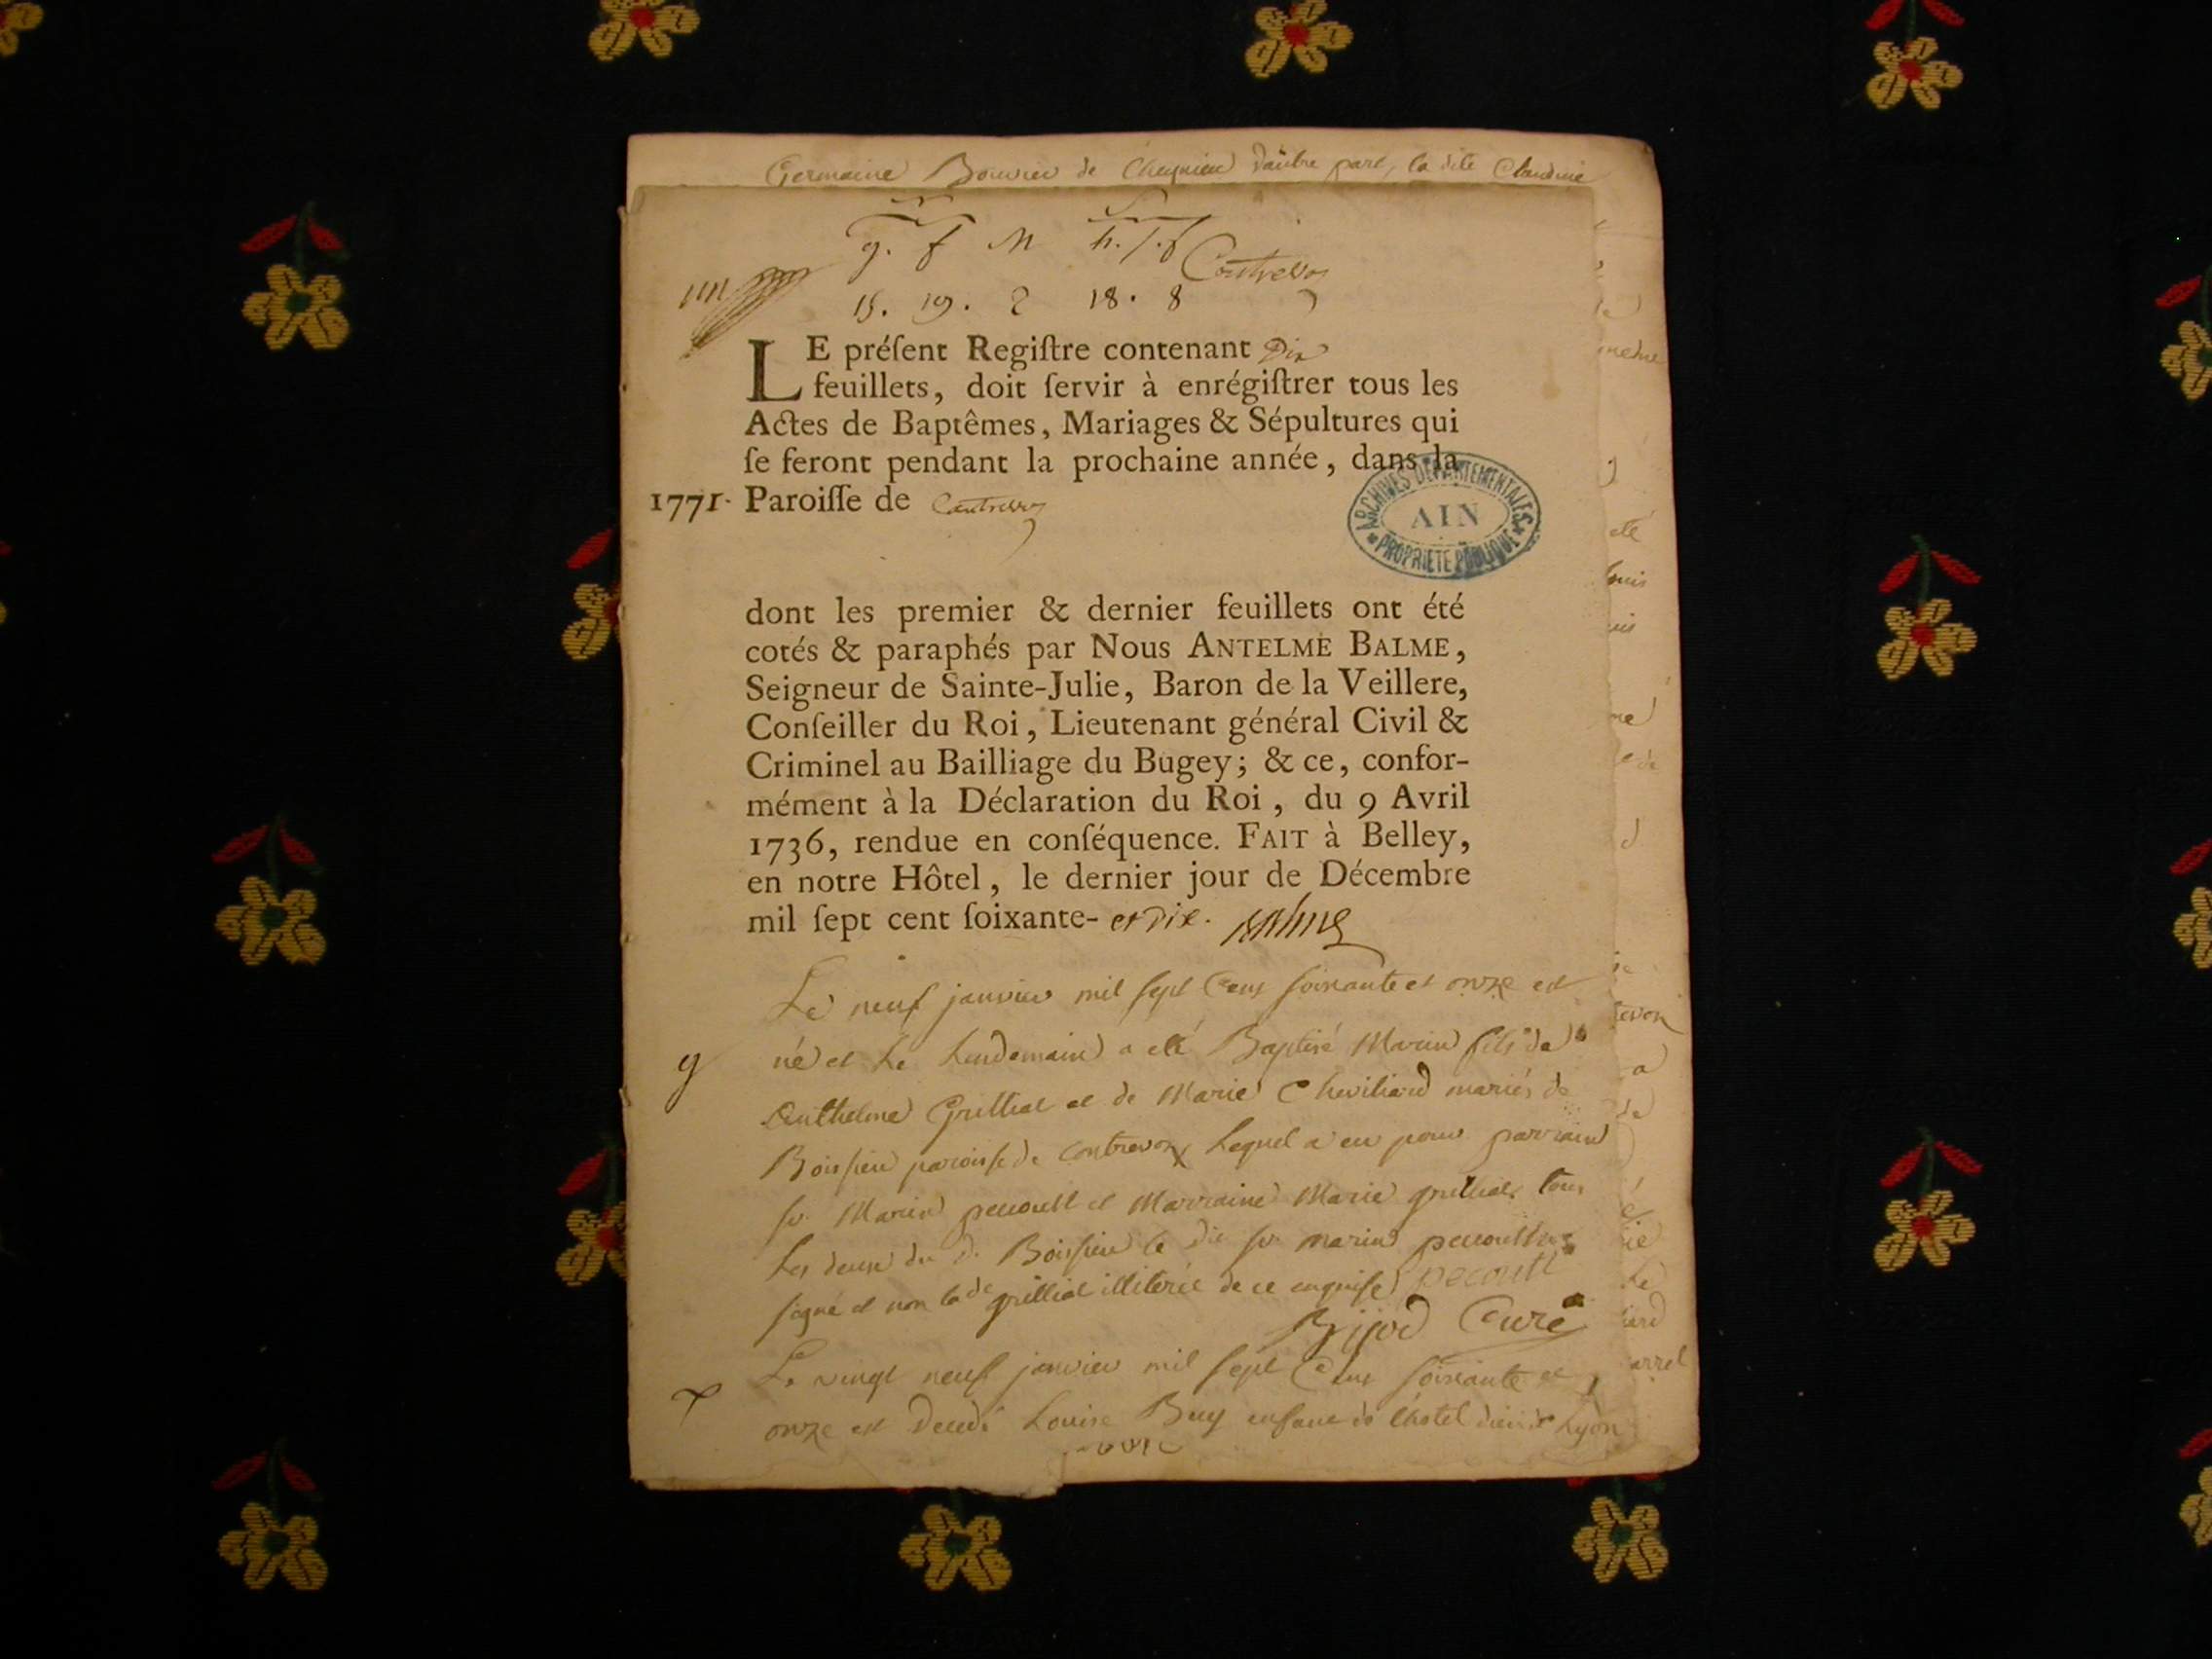 Germaine Bouvier de Cheynieu d'autre part, la dite Claudine
g. f M h. f. f Contrevos
15. 19. 2 18. 8
LE préſent Regiſtre contenant Dix
feuillets, doit ſervir à enrégiſtrer tous les
Actes de Baptêmes, Mariages & Sépultures qui
ſe feront pendant la prochaine année, dans la
1771. Paroiſſe de Contrevoz
ARCHIVES DÉPARTEMENTALES
AIN
PROPRIÉTÉ PUBLIQUE
dont les premier & dernier feuillets ont été
cotés & paraphés par Nous ANTELME BALME,
Seigneur de Sainte-Julie, Baron de la Veillere,
Conſeiller du Roi, Lieutenant général Civil &
Criminel au Bailliage du Bugey; & ce, confor-
mément à la Déclaration du Roi, du 9 Avril
1736, rendue en conſéquence. FAIT à Belley,
en notre Hôtel, le dernier jour de Décembre
mil ſept cent ſoixante- et Dix. Balme
Le neuf janvier mil sept Cens soixante et onze est
g né et le Lendemain a été Baptisé Marin fils de
Anthelme Grilliet et de Marie Cheviliard mariés de
Boissieu paroisse de Contrevoz Lequel a eu pour parrain
sr. Marin pecoult et Marraine Marie grilliet tous
Les deux du d. Boissieu le dit sr marin pecoult
signé et non la de grilliet illiterée de ce enquise pecoult
Bijod Curé
Le vingt neuf janvier mil sept Cens soixante et
onze est decedé Louise Buy enfant de l'hotel dieu de Lyon